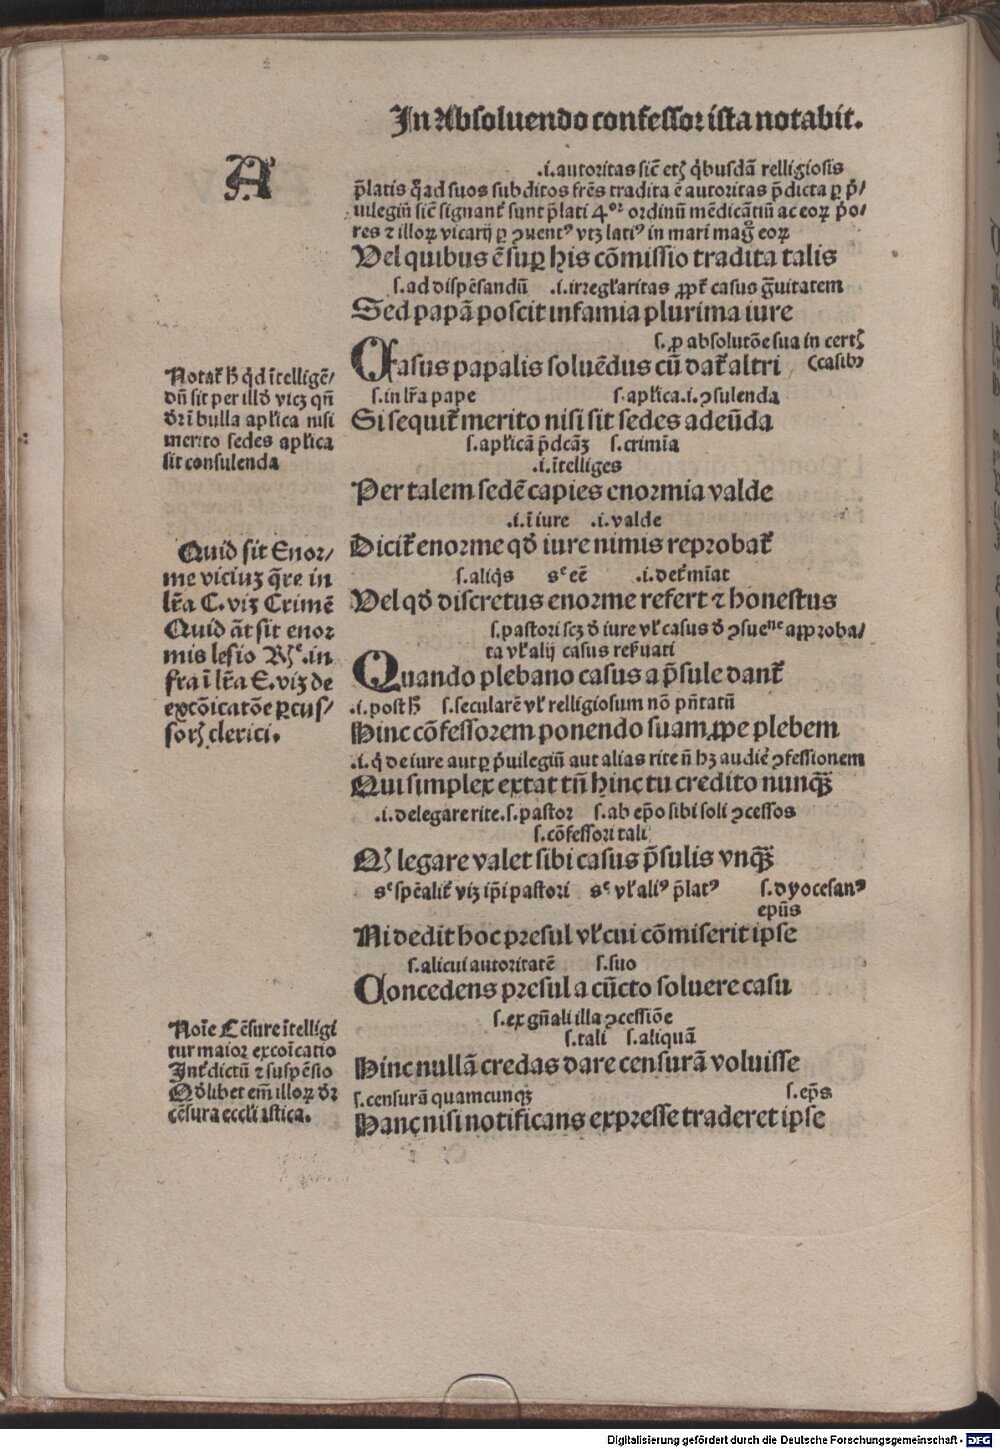 In Absoluendo confessor ista notabit.
A
.i. autoritas sic̄ etꝫ q̇busdā relligiosis
p̄latis q̇ad suos subditos frēs tradita ē autoritas p̄dicta ꝑ p̓/
uilegiū sic̄ signant̄ sunt p̄lati 4ᵒʳ ordinū mēdicātiū ac eoꝝ p̓o/
res ⁊ illoꝝ vicarij ꝑ ꝯuentꝰ vtꝫ latiꝰ in mari mag̊ eoꝝ
Vel quibus ē suꝑ his cōmissio tradita talis
s. ad dispēsandū .i. irregl̓aritas ꝓpt̄ casus g̓uitatem
Sed papā poscit infamia plurima iure
s. ꝓ absolutōe sua in certꝭ
Casus papalis soluēdus cū dat̄ altri
casibꝫ
s. in lr̄a pape s. apl̓ica .i. ꝯsulenda
Si sequit̄ merito nisi sit sedes adeūda
s. apl̓icā p̄dcāꝫ s. crimīa
.i. ītelliges
Per talem sedē capies enormia valde
.i. ī iure .i. valde
Dicit̄ enorme qd̓ iure nimis reprobat̄
s. aliq̇s sᶜ eē .i. det̓mīat
Vel qd̓ discretus enorme refert ⁊ honestus
s. pastori scꝫ d̓ iure vl̓ casus d̓ ꝯsueⁿᵉ aꝓproba/
ta vl̓ alij casus res̓uati
Quando plebano casus a p̄sule dant̄
.i. post h̓ s. secularē vl̓ relligiosum nō pn̄tatū
Hinc cōfessorem ponendo suam ꝓpe plebem
.i. q̇ de iure aut ꝑ p̓uilegiū aut alias rite n̄ hꝫ audiē ꝯfessionem
Qui simplex extat tn̄ hinc tu credito nunq̄ꝫ
.i. delegare rite. s. pastor s. ab ep̄o sibi soli ꝯcessos
s. cōfessori tali
Qꝫ legare valet sibi casus p̄sulis vnq̄ꝫ
sᶜ spēalit̄ viꝫ ip̄i pastori sᶜ vl̓ aliꝰ p̄latꝰ s. dyocesanꝰ
ep̄us
Ni dedit hoc presul vl̓ cui cōmiserit ipse
s. alicui autoritatē s. suo
Concedens presul a cūcto soluere casu
s. ex gn̄ali illa ꝯcessiōe
s. tali s. aliquā
Hinc nullā credas dare censurā voluisse
s. censurā quamcunqꝫ s. ep̄s
Hanc nisi notificans expresse traderet ipse
Notat̄ h̓ q̇d ītelligē/
dū sit per illd̓ vicꝫ qn̄
dr̄ ī bulla apl̓ica nisi
merito sedes apl̓ica
sit consulenda
Quid sit Enor/
me viciuꝫ q̄re in
lr̄a C. viꝫ Crimē
Quid āt sit enor
mis lesio Rꝭᵉ. in
fra ī lr̄a E. viꝫ de
excōicatōe ꝑcus/
sorꝭ clerici.
Noīe Cēsure ītelligi
tur maior excoīcatio
Int̓dictū ⁊ suspēsio
Qd̓libet em̄ illoꝝ dr̄
cēsura eccl̓iastica.
Digitalisierung gefördert durch die Deutsche Forschungsgemeinschaft - DFG